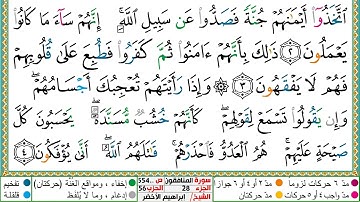 ٱتَّخَذُوٓا۟ أَيْمَٰنَهُمْ جُنَّةً فَصَدُّوا۟ عَن سَبِيلِ ٱللَّهِ ۚ إِنَّهُمْ سَآءَ مَا كَانُوا۟
يَعْمَلُونَ ٢ ذَٰلِكَ بِأَنَّهُمْ ءَامَنُوا۟ ثُمَّ كَفَرُوا۟ فَطُبِعَ عَلَىٰ قُلُوبِهِمْ
فَهُمْ لَا يَفْقَهُونَ ٣ ۞ وَإِذَا رَأَيْتَهُمْ تُعْجِبُكَ أَجْسَامُهُمْ ۖ
وَإِن يَقُولُوا۟ تَسْمَعْ لِقَوْلِهِمْ ۖ كَأَنَّهُمْ خُشُبٌ مُّسَنَّدَةٌ ۖ يَحْسَبُونَ كُلَّ
صَيْحَةٍ عَلَيْهِمْ ۚ هُمُ ٱلْعَدُوُّ فَٱحْذَرْهُمْ ۚ قَٰتَلَهُمُ ٱللَّهُ ۖ أَنَّىٰ يُؤْفَكُونَ ٤
مدّ ٦ حركات لزوما مدّ ٢ أو ٤ أو ٦ جوازا
مدّ واجب ٤ أو ٥ حركات مدّ حركتان
سورة المنافقون ص 554
الجزء 28 الحزب 56
الشيخ/ إبراهيم الأخضر
إخفاء، ومواقع الغُنَّة (حركتان) تفخيم
إدغام، وما لا يُلفَظ قلقلة